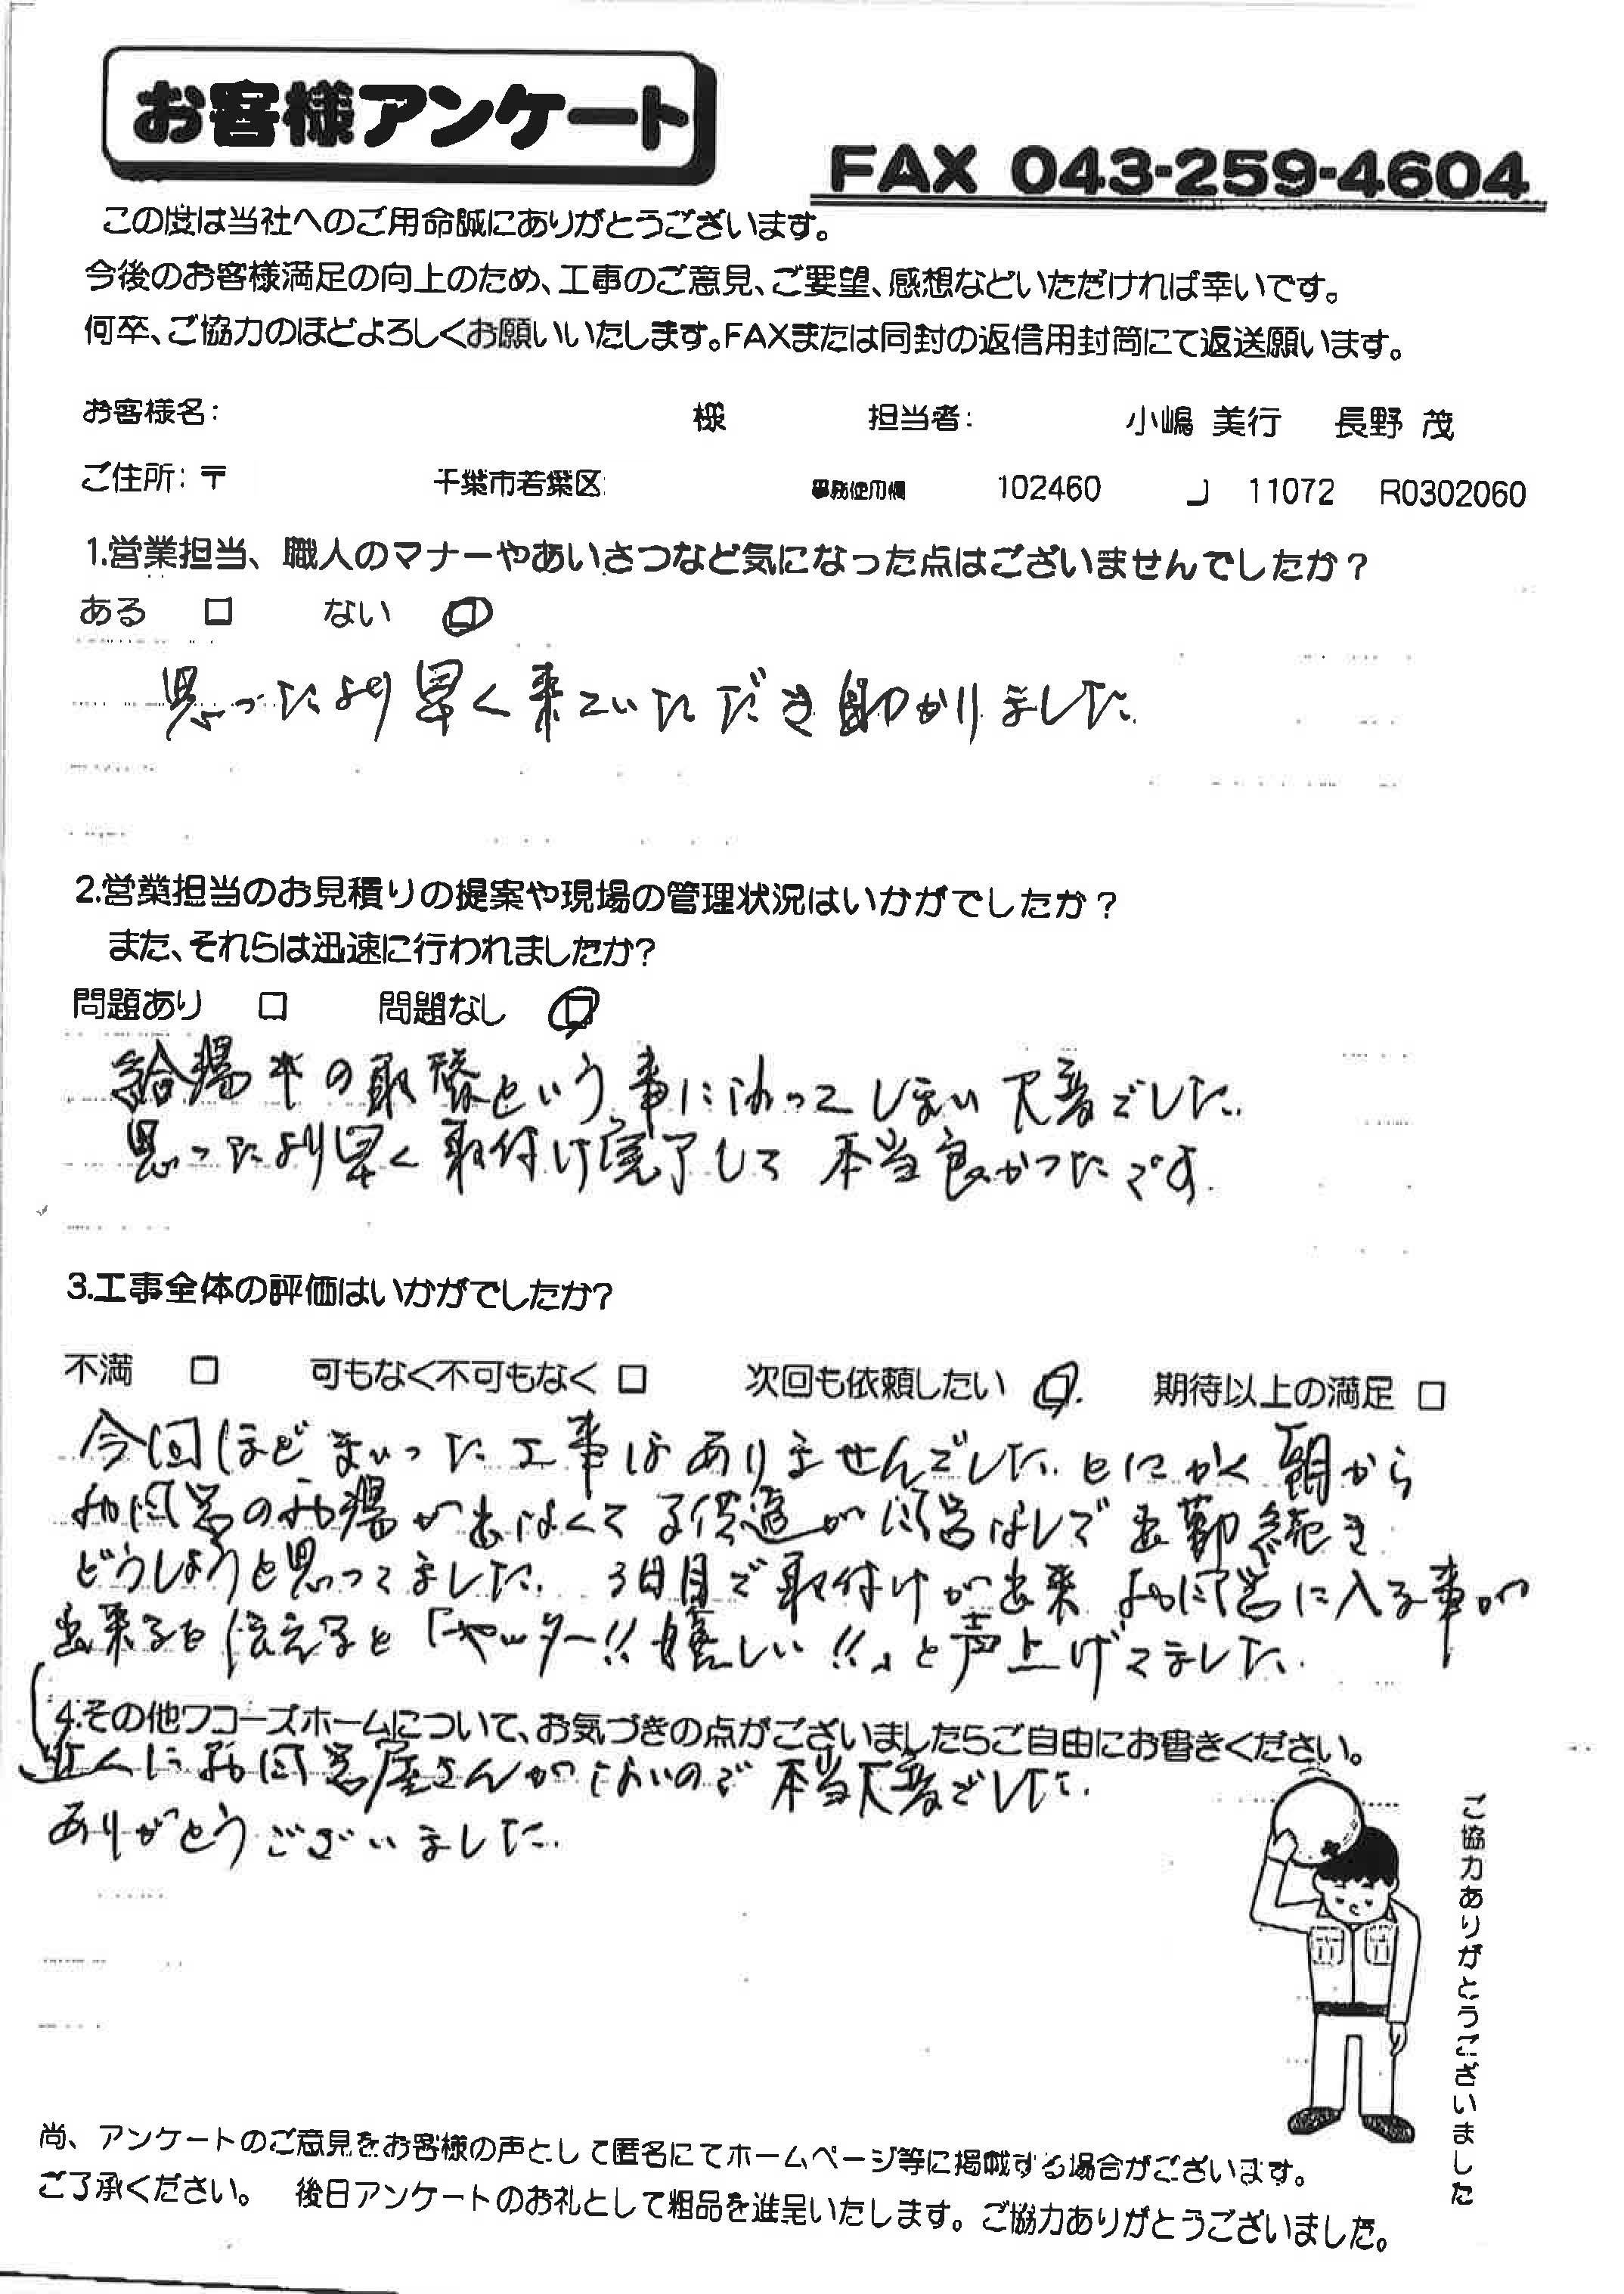 お客様アンケート
FAX 043-259-4604
この度は当社へのご用命誠にありがとうございます。
今後のお客様満足の向上のため、工事のご意見、ご要望、感想などいただければ幸いです。
何卒、ご協力のほどよろしくお願いいたします。FAXまたは同封の返信用封筒にて返送願います。
お客様名: 様 担当者: 小嶋 美行 長野 茂
ご住所:〒 千葉市若葉区 事務使用欄 102460 J 11072 R0302060
1.営業担当、職人のマナーやあいさつなど気になった点はございませんでしたか?
ある □ ない □
思ったより早く来ていただき助かりました
2.営業担当のお見積りの提案や現場の管理状況はいかがでしたか?
また、それらは迅速に行われましたか?
問題あり □ 問題なし □
給湯キの取替という事になってしまい大変でした.
思ったより早く取付け完了して本当良かったです.
3.工事全体の評価はいかがでしたか?
不満 □ 可もなく不可もなく □ 次回も依頼したい □ 期待以上の満足 □
今回ほどまいった工事はありませんでした.とにかく朝から
お風呂のお湯が出なくて子供達が風呂なしで出勤続き
どうしようと思ってました. 3日目で取付けが出来 お風呂に入る事が
出来ると伝えると「ヤッター!!嬉しい!!」と声上げてました.
4.その他ワコーズホームについて、お気づきの点がございましたらご自由にお書きください。
近くにお風呂屋さんがないので本当大変でした.
ありがとうございました.
ご協力ありがとうございました
尚、アンケートのご意見をお客様の声として匿名にてホームページ等に掲載する場合がございます。
ご了承ください。 後日アンケートのお礼として粗品を進呈いたします。ご協力ありがとうございました。